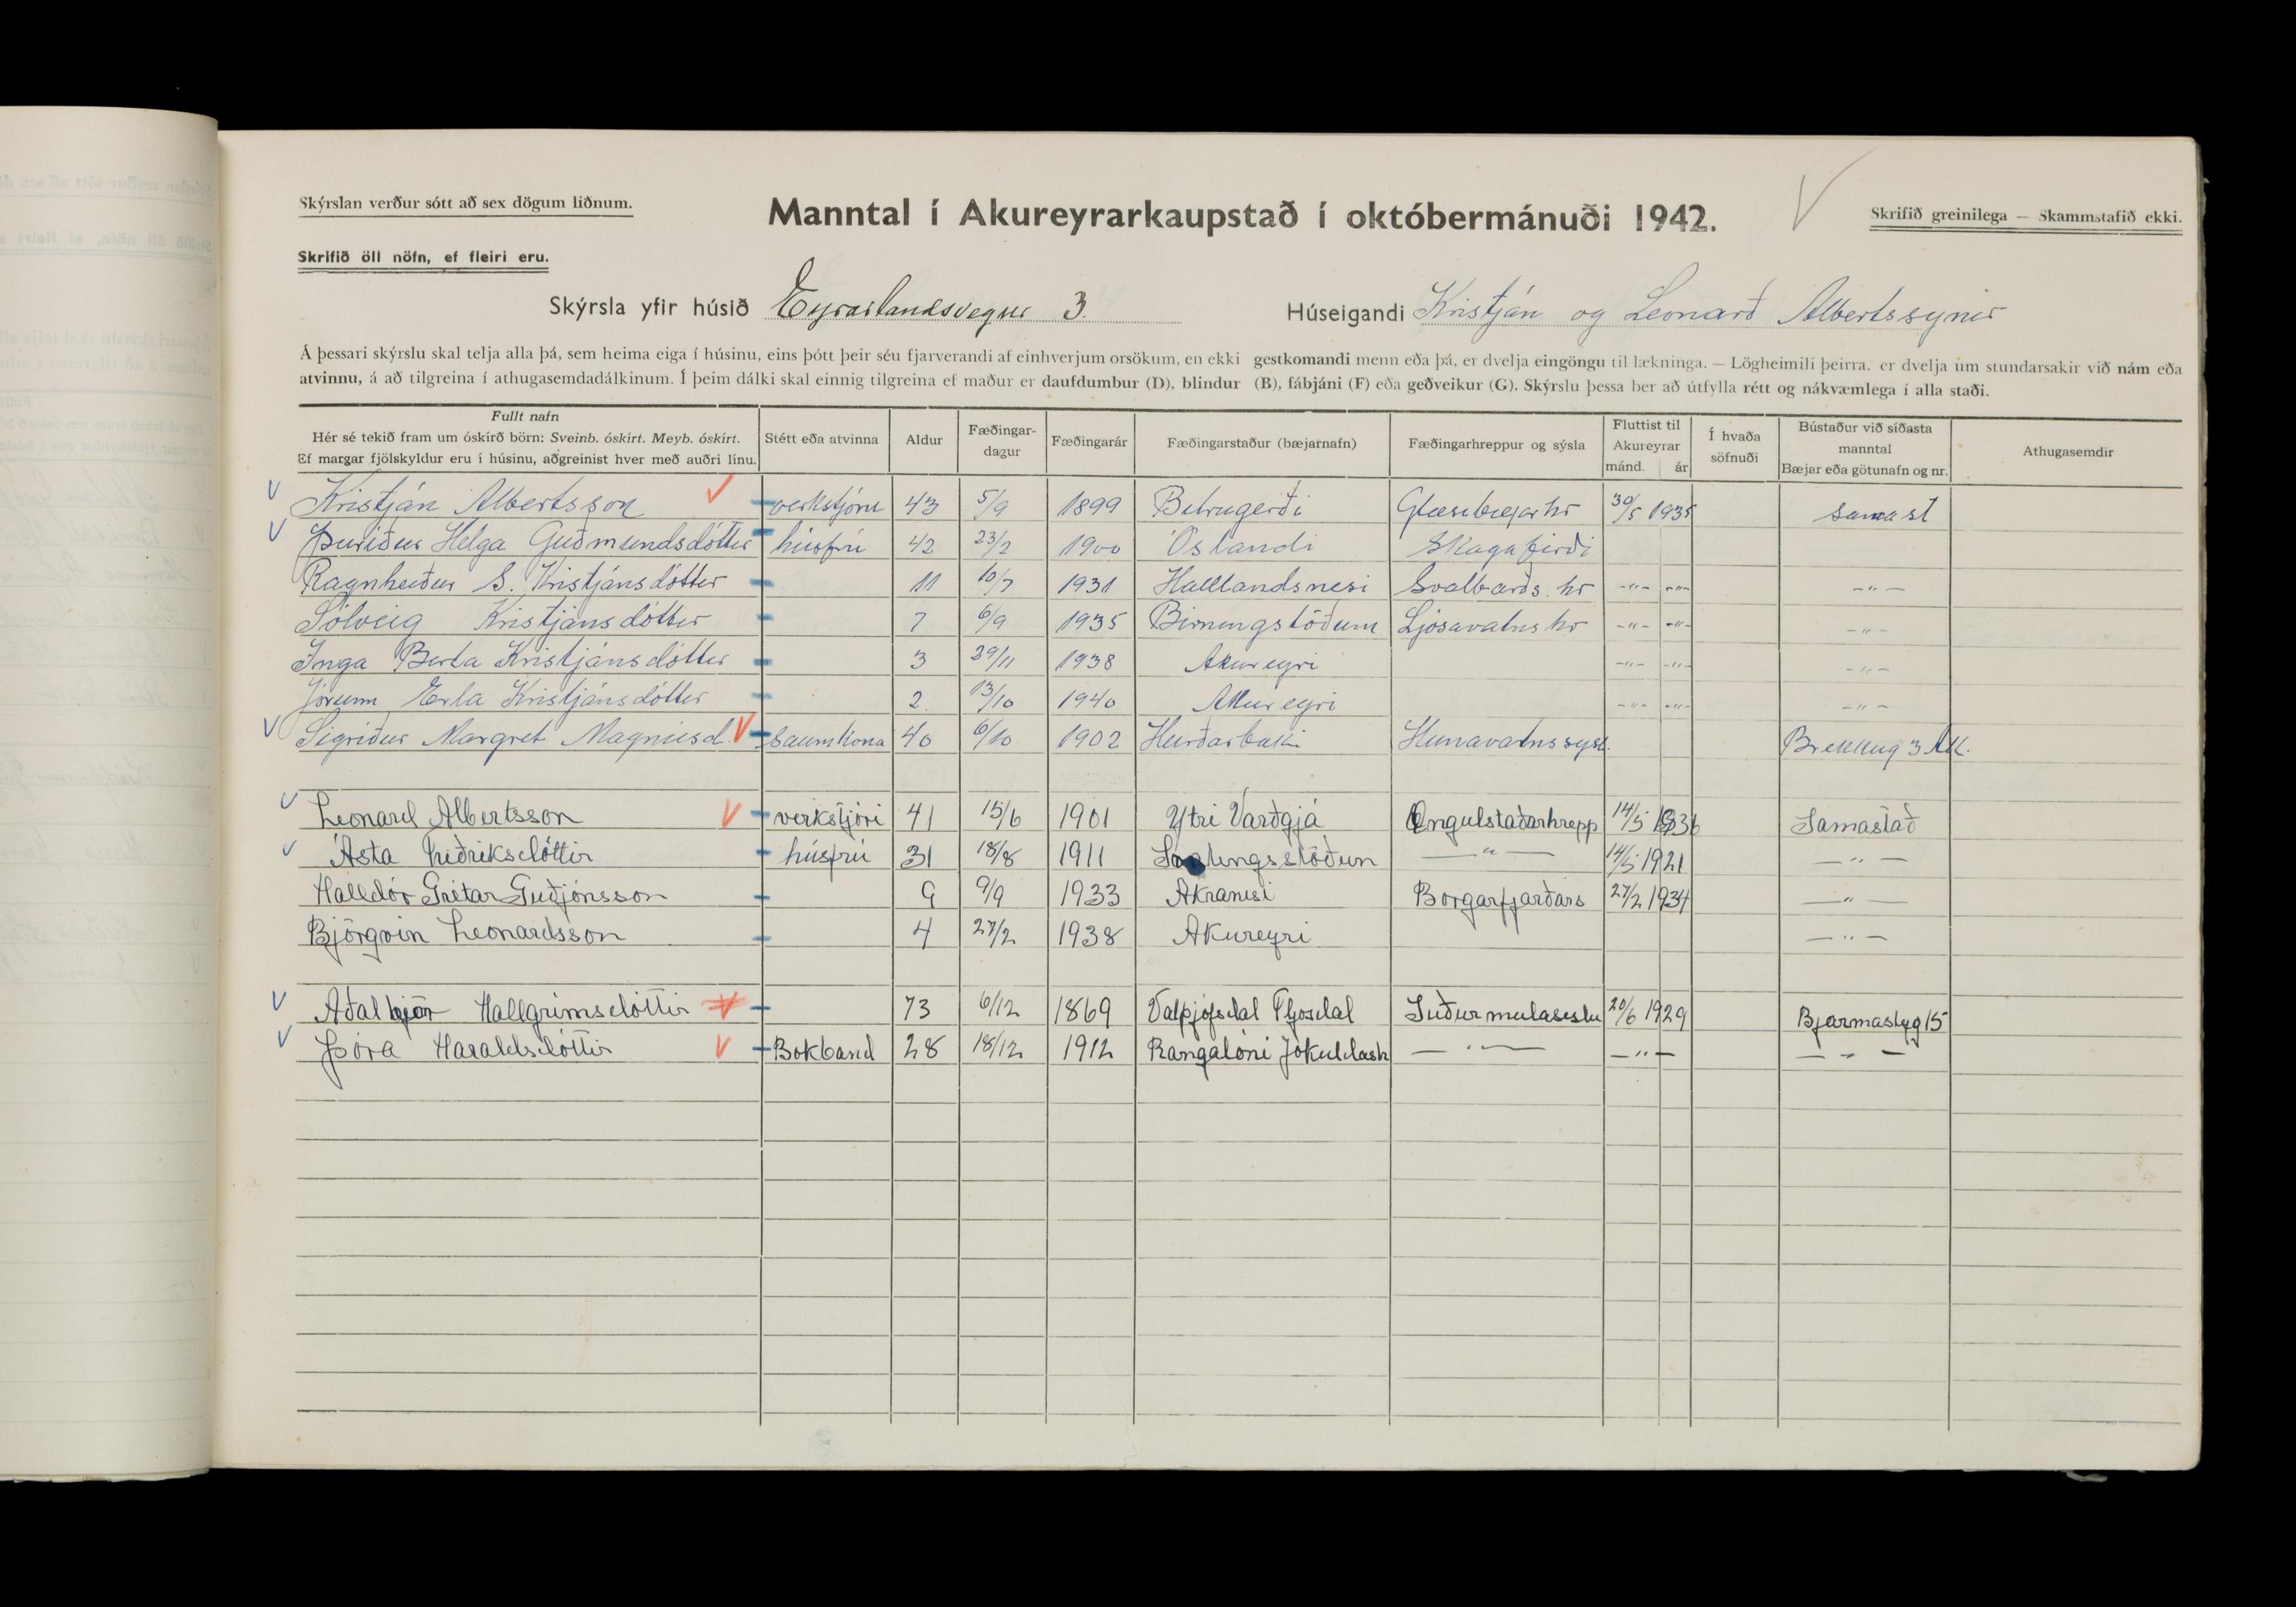 Skýrslan verður sótt að sex dögum liðnum.
Manntal í Akureyrarkaupstað í októbermánuði 1942.
Skrifið greinilega — Skammstafið ekki.
Skrifið öll nöfn, ef fleiri eru.
Skýrsla yfir húsið Eyrarlandsvegur 3.
Húseigandi Kristján og Leonarð Albertssynir
Á þessari skýrslu skal telja alla þá, sem heima eiga í húsinu, eins þótt þeir séu fjarverandi af einhverjum orsökum, en ekki gestkomandi menn eða þá, er dvelja eingöngu til lækninga. — Lögheimili þeirra. er dvelja um stundarsakir við nám eða
atvinnu, á að tilgreina í athugasemdadálkinum. Í þeim dálki skal einnig tilgreina ef maður er daufdumbur (D), blindur (B), fábjáni (F) eða geðveikur (G). Skýrslu þessa ber að útfylla rétt og nákvæmlega í alla staði.
Fullt nafn
Hér sé tekið fram um óskírð börn: Sveinb. óskírt. Meyb. óskírt.
Ef margar fjölskyldur eru í húsinu, aðgreinist hver með auðri línu.
Stétt eða atvinna
Aldur
Fæðingar-
dagur
Fæðingarár
Fæðingarstaður (bæjarnafn)
Fæðingarhreppur og sýsla
Fluttist til
Akureyrar
mánd. ár
Í hvaða
söfnuði
Bústaður við síðasta
manntal
Bæjar eða götunafn og nr.
Athugasemdir
Kristján Albertsson verkstjóri 43 5/9 1899 Glæsibæjar hr 30/5 1935 samast
Þuríður Helga Guðmundsdóttir húsfrú 42 23/2 1900 Óslandi Skagafirði
Ragnheiður S. Kristjánsdóttir 11 10/7 1931 Halllandsnesi Svalbarðs. hr -"- -"- -"-
Sólveig Kristjánsdóttir 7 6/9 1935 Birningstöðum Ljósavatns hr -"- -"- -"-
Inga Berta Kristjánsdóttir 3 29/11 1938 Akureyri -"- -"- -"-
Jórunn Erla Kristjánsdóttir 2. 13/10 1940 Akureyri -"- -"- -"-
Sigríður Margret Magnúsd. Saumkona 40 6/10 1902 Hurðarbaki Húnavatnssysl. Brekkug 3 Ak.
Leonard Albertsson verkstjóri 41 15/6 1901 Ytri Varðgjá Öngulstaðarhrepp 14/5 1936 Samastað
Ásta Friðriksdóttir húsfrú 31 18/8 1911 — " — 14/5 1921 — " —
Halldór Grétar Guðjónsson 9 9/9 1933 Akranesi Borgarfjarðars 27/2 1934 — " —
Björgvin Leonardsson 4 27/2 1938 Akureyri — " —
Aðalbjör Hallgrímsdóttir 73 6/12 1869 Valþjófsdal Fljosdal Suðurmulaseslu 20/6 1929 Bjarmastyg 15
Þóra Haraldsdóttir Bokband 28 18/12 1912 Rangalóni Jökuldash — " — — " — — " —